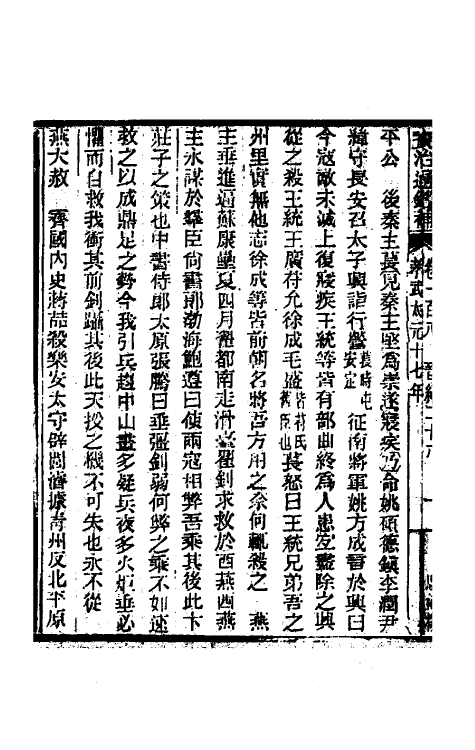 資治通鑑補 卷一百八 晉紀三十 孝武太元十七年
平公 後秦主萇見秦主堅爲祟遂寢疾乃命姚碩德鎮李潤尹
緯守長安召太子興詣行營萇時屯安定 征南將軍姚方成言於興曰
今寇敵未滅上復寢疾王統等皆有部曲終爲人患宜盡除之興
從之殺王統王廣苻允徐成毛盛皆苻氏舊臣也 萇怒曰王統兄弟吾之
州里實無他志徐成等皆前朝名將吾方用之柰何輒殺之 燕
主垂進逼蘇康壘夏四月翟都南走滑臺翟釗求救於西燕西燕
主永謀於羣臣尚書郎渤海鮑遵曰使兩寇相弊吾乘其後此卞
莊子之策也中書侍郎太原張騰曰垂彊釗弱何弊之乘不如速
救之以成鼎足之勢今我引兵趨中山晝多疑兵夜多火炬垂必
懼而自救我衝其前釗躡其後此天授之機不可失也永不從
燕大赦 齊國內史蔣喆殺樂安太守辟閭濬據青州反北平原